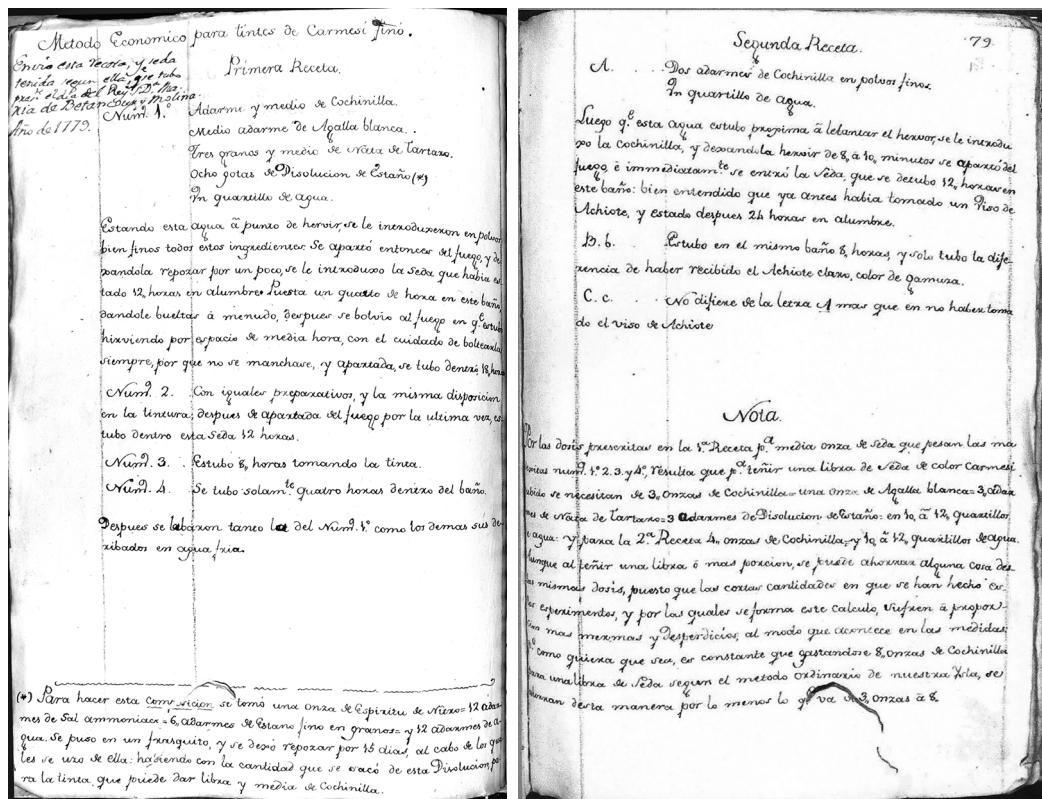 Metodo Economico para tintes de Carmesi fino.
Envio esta receta, y seda
tenida segun ella que tubo
pres.te el dia del Rey, D.a Ma
ria de Betancourt y Molina.
Año de 1779.
Primera Receta.
Num.o 1.o Adarme y medio de Cochinilla.
Medio adarme de Agalla blanca.
Tres granos y medio de Nata de Tartaro.
Ocho gotas de Disolucion de Estaño (*)
Un quartillo de agua.
Estando esta agua â punto de hervir, se le introduxeron en polvos
bien finos todos estos ingredientes. Se apartó entonces del fuego, y de
xandola repozar por un poco, se le introduxo la Seda que habia es
tado 12, horas en alumbre. Puesta un quarto de hora en este baño,
dandole bueltas á menudo, despues se bolvio al fuego en q.e estubo
hirviendo por espacio de media hora, con el cuidado de boltearla
siempre, por que no se manchase, y apartada, se tubo dentro 18, horas
Num.o 2. Con iguales preparativos, y la misma disposicion
en la tintura; despues de apartada del fuego por la ultima vez, es
tubo dentro esta Seda 12 horas.
Num.o 3. Estubo 8, horas tomando la tinta.
Num.o 4. Se tubo solam.te quatro horas dentro del baño.
Despues se labaron tanto la del Num.o 1.o como los demas sus de
ribados en agua fria.
(*) Para hacer esta composicion se tomó una onza de Espiritu de Nitro= 12 adar
mes de Sal ammoniac= 6, adarmes de Estano fino en granos= y 12 adarmes de a
gua. Se puso en un frasquito, y se dexó repozar por 15 dias, al cabo de los qua
les se uzo de ella: habiendo con la cantidad que se sacó de esta Disolucion, pa
ra la tinta, que puede dar libra y media de Cochinilla.
79.
Segunda Receta.
A. Dos adarmes de Cochinilla en polvos finos.
Un quartillo de agua.
Luego q.e esta agua estubo proxima â lebantar el hervor, se le introdu
xo la Cochinilla, y dexandola hervir de 8, â 10, minutos se apartó del
fuego, é immediatam.te se entró la Sêda, que se detubo 12, horas en
este baño: bien entendido que ya antes habia tomado un Viso de
Achiote, y estado despues 24 horas en alumbre.
B. b. Estubo en el mismo baño 8, horas, y solo tubo la dife
rencia de haber recibido el Achiote claro, color de gamuza.
C. c. No difiere de la letra A mas que en no haber toma
do el viso de Achiote
Nota.
Por las dosis prescritas en la 1.a Receta p.a media onza de Seda que pesan las ma
ripitas num.o 1.o 2. 3. y 4.o, resulta que p.a teñir una libra de Sêda de color Carmesi
subido se necesitan de 3, onzas de Cochinilla= una onza de Agalla blanca= 3, adar
mes de Nata de Tartaro= 3 adarmes de Disolucion de Estaño: en 10, â 12, quartillos
de agua: y para la 2.a Receta 4, onzas de Cochinilla, y 10, â 12, quartillos de agua.
Aunque al teñir una libra ô mas porcion, se puede ahorrar alguna cosa des
tas mismas dosis, puesto que las cortas cantidades en que se han hecho es
tos esperimentos, y por las quales se forma este calculo, sufren â propor
cion mas mermas y desperdicios, al modo que acontece en las medidas:
como quiera que sea, es constante que gastandose 8, onzas de Cochinilla
para una libra de Seda segun el metodo ordinario de nuestra Ysla, se
ahorran desta manera por lo menos lo q.e va de 3, onzas â 8.